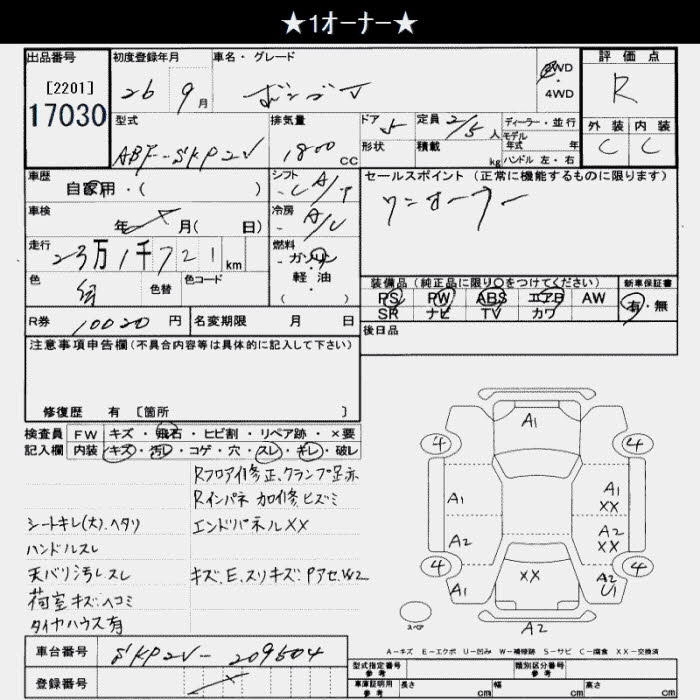 ★1オーナー★
出品番号 初度登録年月 車名・グレード 評価点
[2201]
17030
26 9月 ボンゴV 2WD
4WD
R
型式 排気量 ドア 定員 ディーラー・並行
ABF-SKP2V 1800 CC 5 2/5 人 モデル年式 年
形状 積載 kg ハンドル 左・右
外装 内装
C C
車歴 シフト セールスポイント(正常に機能するものに限ります)
自家用・( ) A/T
ワンオーナー
車検 年 月( 日) 冷房 A/C
走行 23万1千721km 燃料
ガソリン
軽・油
色 色替 色コード
装備品(純正品に限り○をつけてください) 新車保証書
PS PW ABS エアB AW 有・無
SR ナビ TV カワ
R券 10020円 名変期限 月 日 後日品
注意事項申告欄(不具合内容等は具体的に記入して下さい)
修復歴 有 [箇所 ]
検査員 FW キズ・飛石・ヒビ割・リペア跡・×要
記入欄 内装 キズ・汚レ・コゲ・穴・スレ・キレ・破レ
Rフロア修正、クランプ足赤
Rインパネ加修、ヒズミ
シートキレ(大).ヘタリ エンドパネルXX
ハンドルスレ
天バリ汚レスレ キズ、E、スリキズ、PアセW2
荷室キズヘコミ
タイヤハウス有
A1
4 4
A1 A1
XX
A2 A2
XX
4 4
A1 XX A2
U1
スペア
A2
A-キズ E-エクボ U-凹み W-補修跡 S-サビ C-腐食 XX-交換済
車台番号 SKP2V-209504
登録番号
型式指定番号 参考 類別区分番号 参考
車庫証明用 参考 長さ cm 幅 cm 高さ cm